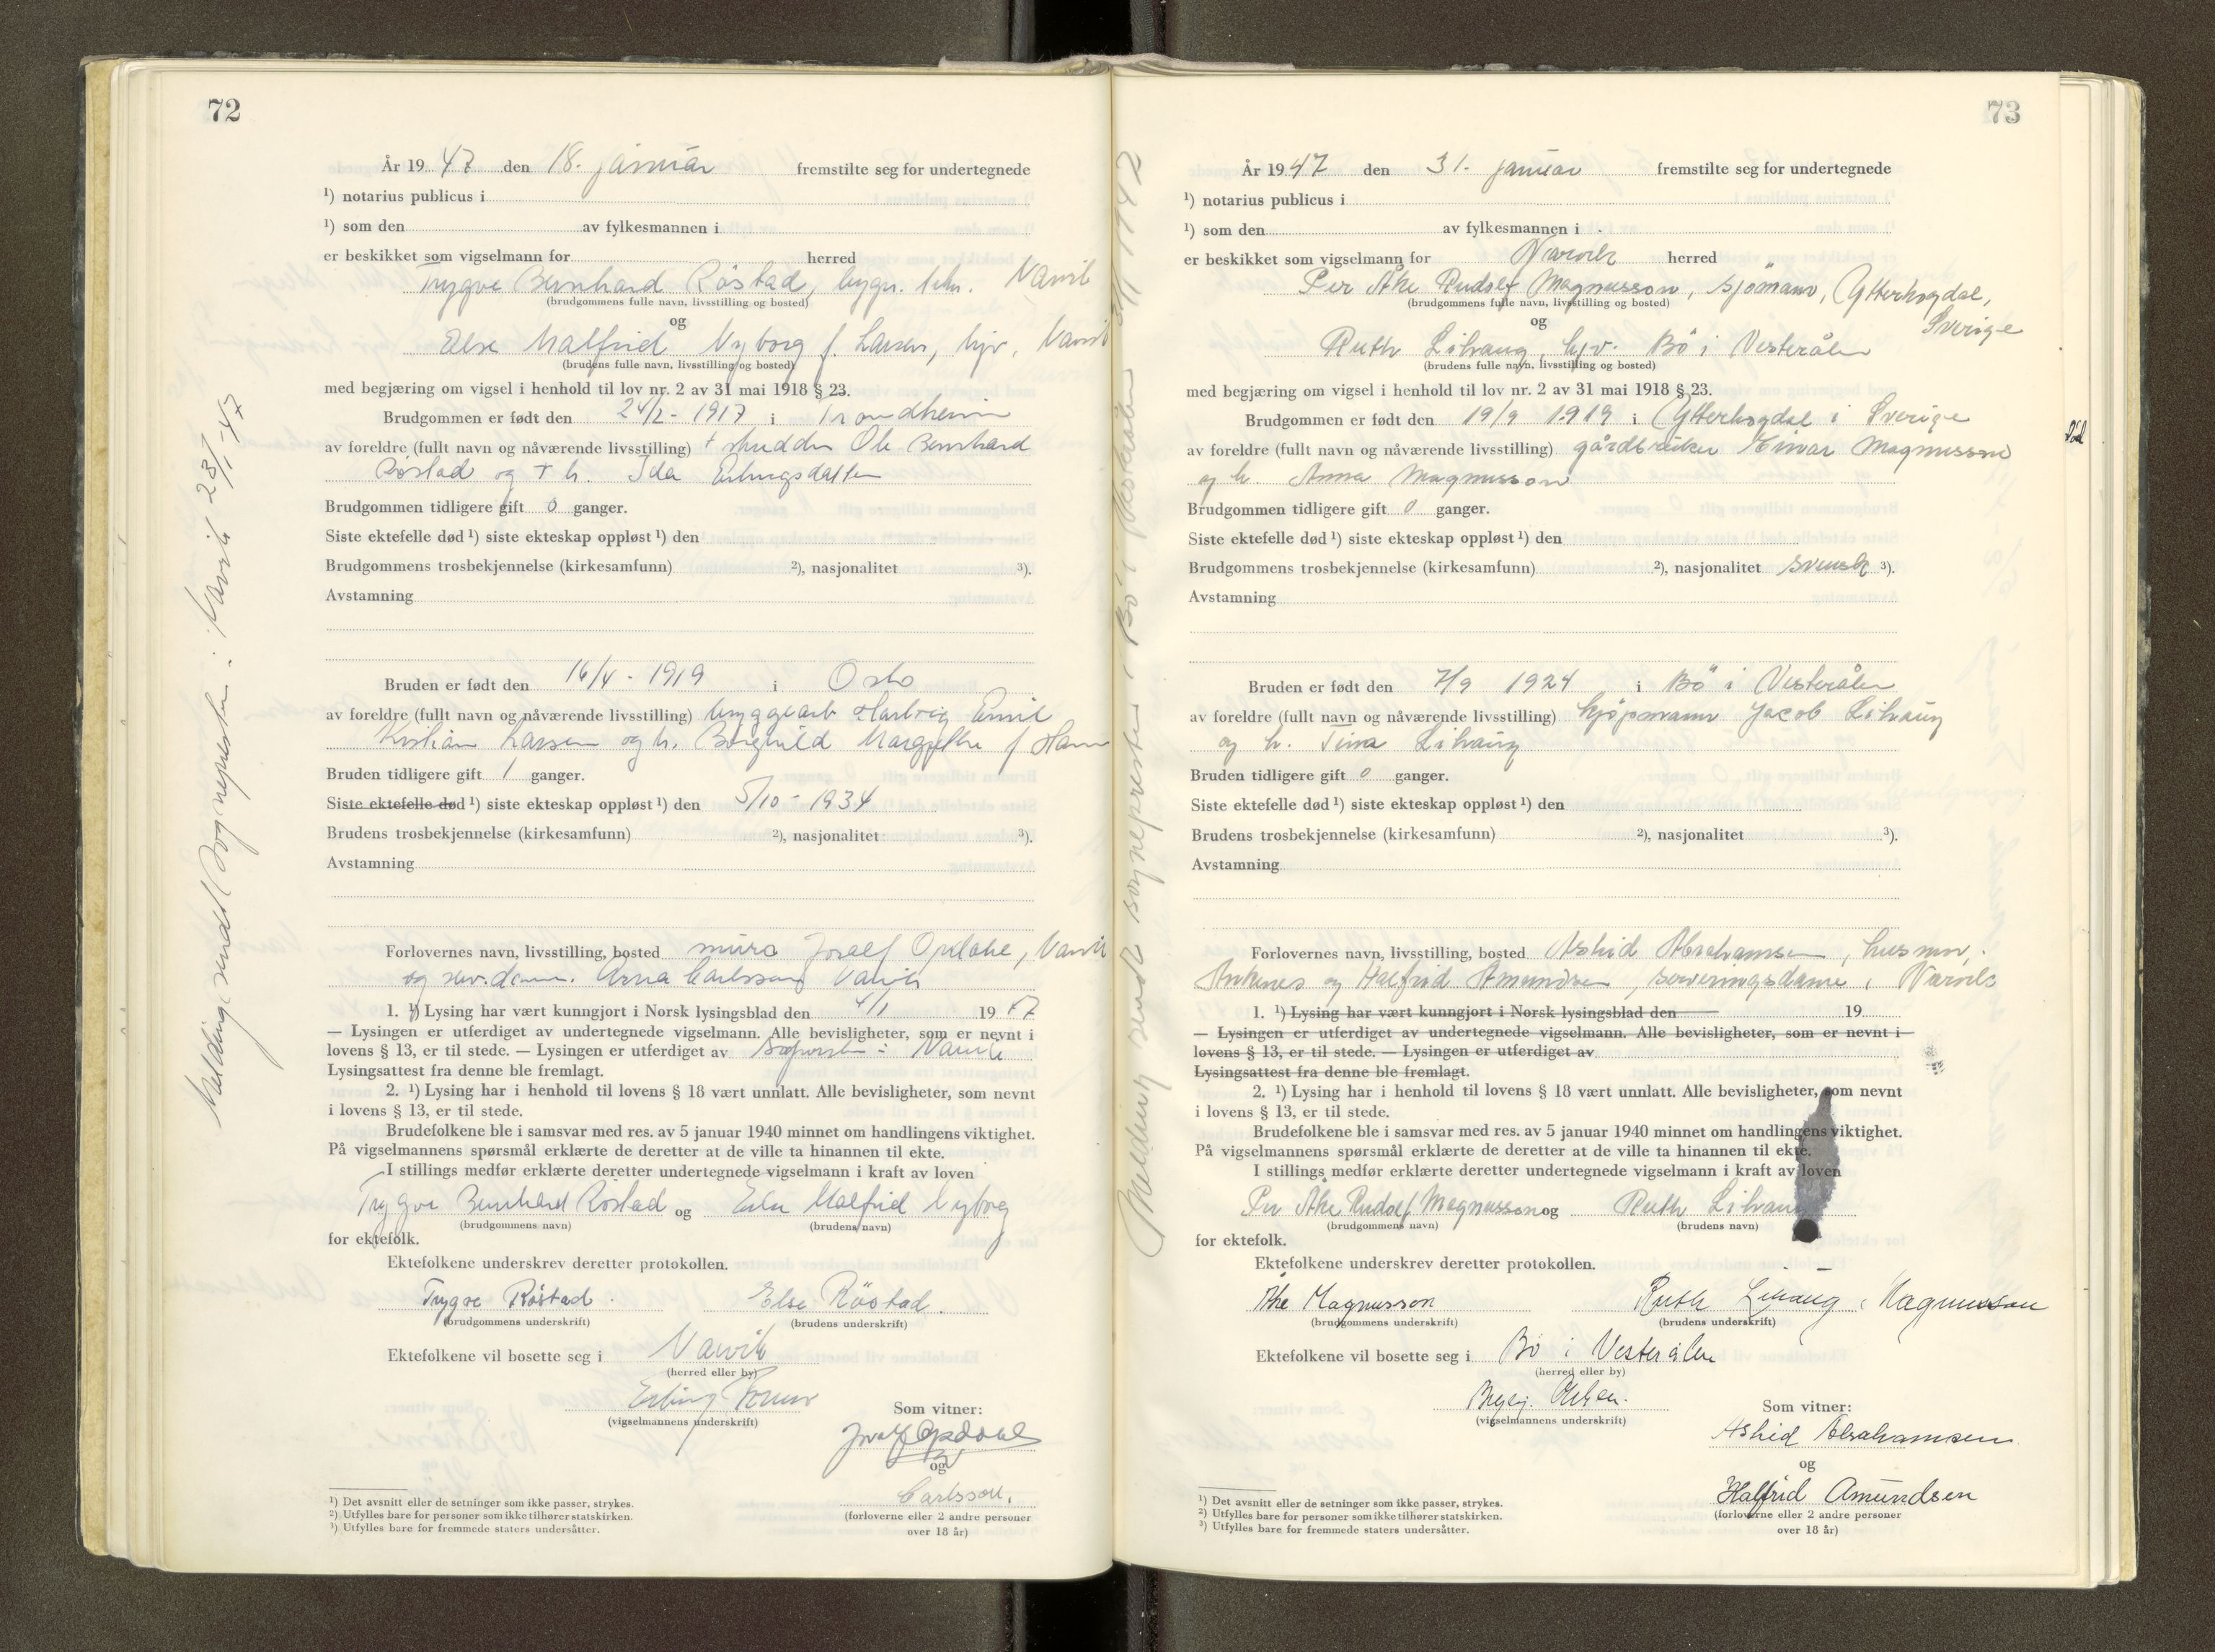 72
År 1947 den 18. januar fremstilte seg for undertegnede
¹) notarius publicus i
¹) som den av fylkesmannen i
er beskikket som vigselmann for herred
Trygve Bernhard Röstad, bygn. Narvik
(brudgommens fulle navn, livsstilling og bosted)
og
Else Malfrid Nyborg f. Larsen, hjv, Narvik
(brudens fulle navn, livsstilling og bosted)
med begjæring om vigsel i henhold til lov nr. 2 av 31 mai 1918 § 23.
Brudgommen er født den 24/2 - 1917 i Trondheim
av foreldre (fullt navn og nåværende livsstilling) + Ole Bernhard
Röstad og + h. Ida
Brudgommen tidligere gift 0 ganger.
Siste ektefelle død ¹) siste ekteskap oppløst ¹) den
Brudgommens trosbekjennelse (kirkesamfunn) ²), nasjonalitet ³).
Avstamning
Bruden er født den 16/4 - 1919 i Oslo
av foreldre (fullt navn og nåværende livsstilling) bryggearb Hartvig Emil
Kristian Larsen og h. Borghild Margrethe f
Bruden tidligere gift 1 ganger.
Siste ektefelle død ¹) siste ekteskap oppløst ¹) den 5/10 - 1934
Brudens trosbekjennelse (kirkesamfunn) ²), nasjonalitet ³).
Avstamning
Forlovernes navn, livsstilling, bosted murer Opdahl, Narvik
og serv.dame Carlsson Narvik
1. ¹) Lysing har vært kunngjort i Norsk lysingsblad den 4/1 1947
— Lysingen er utferdiget av undertegnede vigselmann. Alle bevisligheter, som er nevnt i
lovens § 13, er til stede. — Lysingen er utferdiget av i Narvik
Lysingsattest fra denne ble fremlagt.
2. ¹) Lysing har i henhold til lovens § 18 vært unnlatt. Alle bevisligheter, som nevnt
i lovens § 13, er til stede.
Brudefolkene ble i samsvar med res. av 5 januar 1940 minnet om handlingens viktighet.
På vigselmannens spørsmål erklærte de deretter at de ville ta hinannen til ekte.
I stillings medfør erklærte deretter undertegnede vigselmann i kraft av loven
Trygve Bernhard Röstad og Else Malfrid Nyborg
(brudgommens navn) (brudens navn)
for ektefolk.
Ektefolkene underskrev deretter protokollen.
Trygve Röstad. Else Röstad.
(brudgommens underskrift) (brudens underskrift)
Ektefolkene vil bosette seg i Narvik
(herred eller by)
Erling
(vigselmannens underskrift)
Som vitner:
Opdahl
og
Carlsson.
(forloverne eller 2 andre personer
over 18 år)
¹) Det avsnitt eller de setninger som ikke passer, strykes.
²) Utfylles bare for personer som ikke tilhører statskirken.
³) Utfylles bare for fremmede staters undersåtter.
Melding sendt Sognepresten i Narvik 23/1-47
73
År 1947 den 31. januar fremstilte seg for undertegnede
¹) notarius publicus i
¹) som den av fylkesmannen i
er beskikket som vigselmann for Narvik herred
Per Åke Rudolf Magnusson, sjömann, Ytterhogdal,
Sverige
(brudgommens fulle navn, livsstilling og bosted)
og
Ruth Lihaug, hjv. Bö i Vesterålen
(brudens fulle navn, livsstilling og bosted)
med begjæring om vigsel i henhold til lov nr. 2 av 31 mai 1918 § 23.
Brudgommen er født den 19/9 1919 i Ytterhogdal i Sverige
av foreldre (fullt navn og nåværende livsstilling) gårdbruker Einar Magnusson
og h. Anna Magnusson
Brudgommen tidligere gift 0 ganger.
Siste ektefelle død ¹) siste ekteskap oppløst ¹) den
Brudgommens trosbekjennelse (kirkesamfunn) ²), nasjonalitet svensk ³).
Avstamning
Bruden er født den 7/9 1924 i Bö i Vesterålen
av foreldre (fullt navn og nåværende livsstilling) kjöpmann Jacob Lihaug
og h. Tina Lihaug
Bruden tidligere gift 0 ganger.
Siste ektefelle død ¹) siste ekteskap oppløst ¹) den
Brudens trosbekjennelse (kirkesamfunn) ²), nasjonalitet ³).
Avstamning
Forlovernes navn, livsstilling, bosted Astrid Abrahamsen, husmor,
Ankenes og Halfrid Amundsen, serveringsdame, Narvik
1. ¹) Lysing har vært kunngjort i Norsk lysingsblad den 19
— Lysingen er utferdiget av undertegnede vigselmann. Alle bevisligheter, som er nevnt i
lovens § 13, er til stede. — Lysingen er utferdiget av
Lysingsattest fra denne ble fremlagt.
2. ¹) Lysing har i henhold til lovens § 18 vært unnlatt. Alle bevisligheter, som nevnt
i lovens § 13, er til stede.
Brudefolkene ble i samsvar med res. av 5 januar 1940 minnet om handlingens viktighet.
På vigselmannens spørsmål erklærte de deretter at de ville ta hinannen til ekte.
I stillings medfør erklærte deretter undertegnede vigselmann i kraft av loven
Per Åke Rudolf Magnusson og Ruth Lihaug
(brudgommens navn) (brudens navn)
for ektefolk.
Ektefolkene underskrev deretter protokollen.
Åke Magnusson Ruth Lihaug Magnusson
(brudgommens underskrift) (brudens underskrift)
Ektefolkene vil bosette seg i Bö i Vesterålen
(herred eller by)
(vigselmannens underskrift)
Som vitner:
Astrid Abrahamsen
og
Halfrid Amundsen
(forloverne eller 2 andre personer
over 18 år)
¹) Det avsnitt eller de setninger som ikke passer, strykes.
²) Utfylles bare for personer som ikke tilhører statskirken.
³) Utfylles bare for fremmede staters undersåtter.
Melding sendt sognepresten i Bö i Vesterålen 31/1 1947